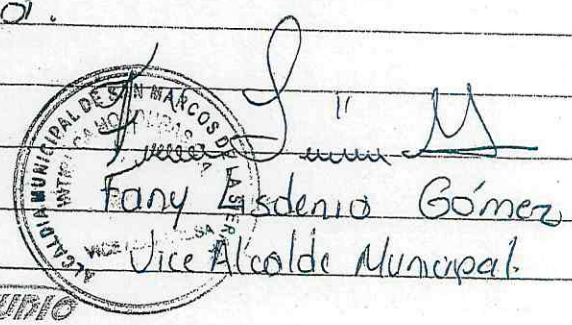 ALCALDIA MUNICIPAL DE SAN MARCOS DE LA SIERRA
INTIBUCA HONDURAS
Fany Lisdenia Gómez
Vice Alcalde Municipal.